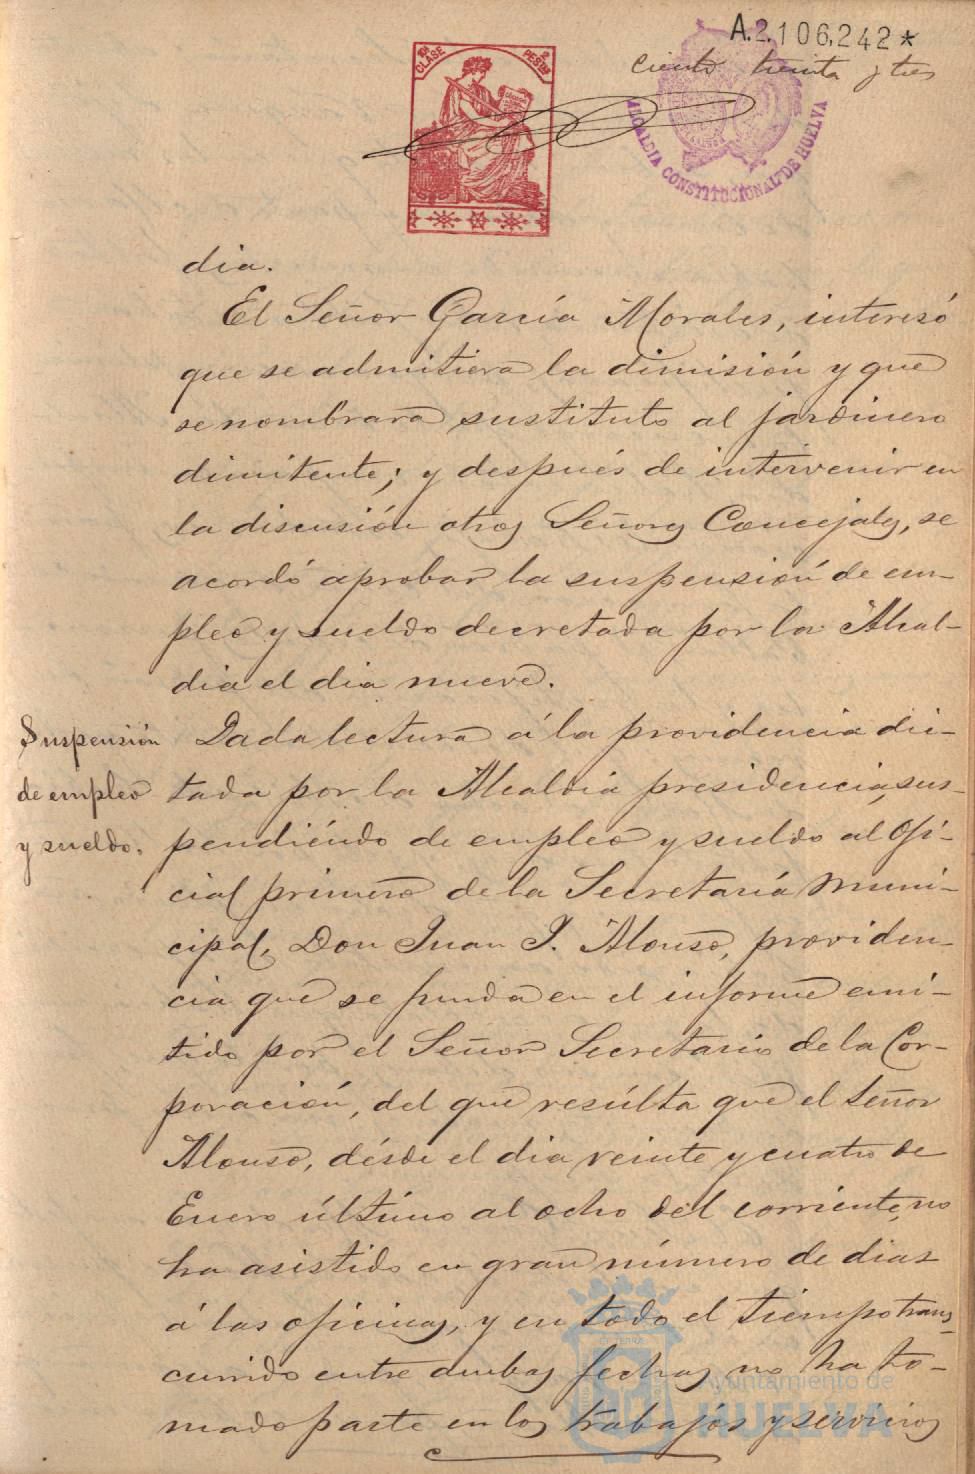 A.2.106,242*
ciento treinta y tres
10ª CLASE 2 PESTAS
ALCALDIA CONSTITUCIONAL DE HUELVA
dia.
El Señor García Morales, interesó
que se admitiera la dimisión y que
se nombrara sustituto al jardinero
dimitente; y después de intervenir en
la discusión otros Señores Concejales, se
acordó aprobar la suspensión de em-
pleo y sueldo decretada por la Alcal-
dia el dia nueve.
Suspensión
de empleo
y sueldo.
Dada lectura á la providencia dic-
tada por la Alcaldia presidencia, sus-
pendiéndo de empleo y sueldo al Ofi-
cial primero de la Secretaría Muni-
cipal, Don Juan J. Alonso, providen-
cia que se funda en el informe emi-
tido por el Señor Secretario de la Cor-
poración, del que resúlta que el señor
Alonso, désde el dia veinte y cuatro de
Enero último al ocho del corriente, no
ha asistido en gran número de dias
á las oficinas, y en todo el tiempo trans-
currido entre ambas fechas no ha to-
mado parte en los trabajos y servicios
Ayuntamiento de
HUELVA